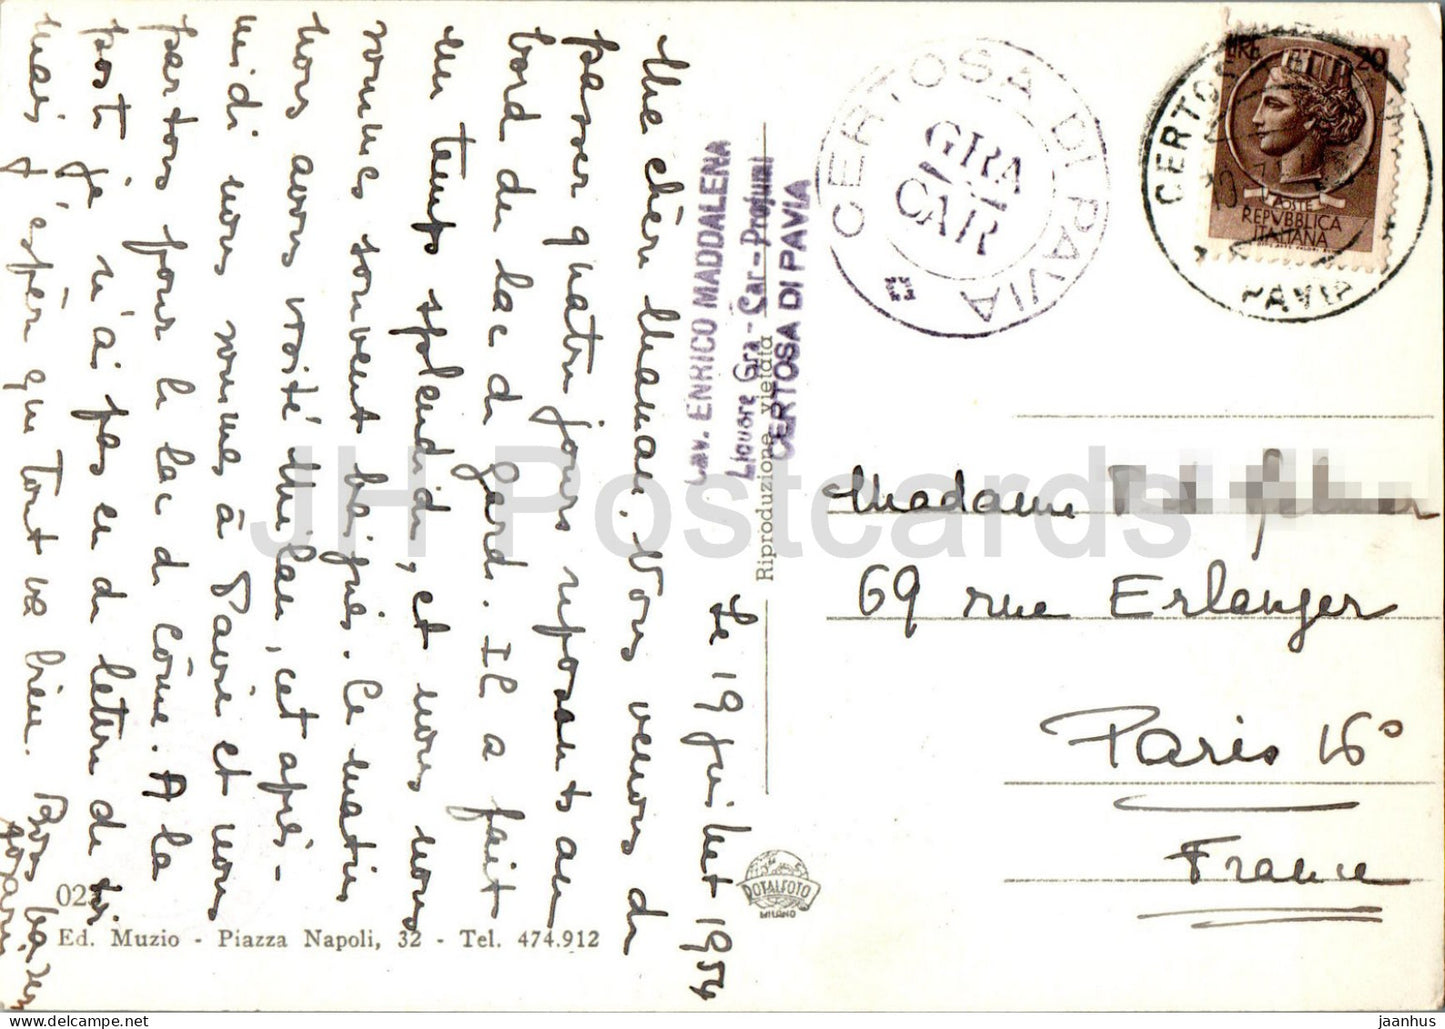 Le 19 juillet 1954
Ma chère Maman. Nous venons de
passer quatre jours reposants au
bord du lac de Garde. Il a fait
un temps splendide, et nous nous
sommes souvent baignés. Ce matin
nous avons visité Milan, cet après-
midi nous sommes à Pavie et nous
partons pour le lac de Côme. A la
poste je n'ai pas eu de lettre de toi
mais j'espère que tout va bien. Bons baisers
CERTOSA DI PAVIA
GRA
CAR
Cav. ENRICO MADDALENA
Liquore Gra - Car - Profumi
CERTOSA DI PAVIA
Riproduzione Vietata
LIRE 20
POSTE
REPVBBLICA
ITALIANA
CERTOSA
PAVIA
Madame
69 rue Erlanger
Paris 16°
France
ROTALFOTO
MILANO
02
Ed. Muzio - Piazza Napoli, 32 - Tel. 474.912
JH Postcards
jaanhus